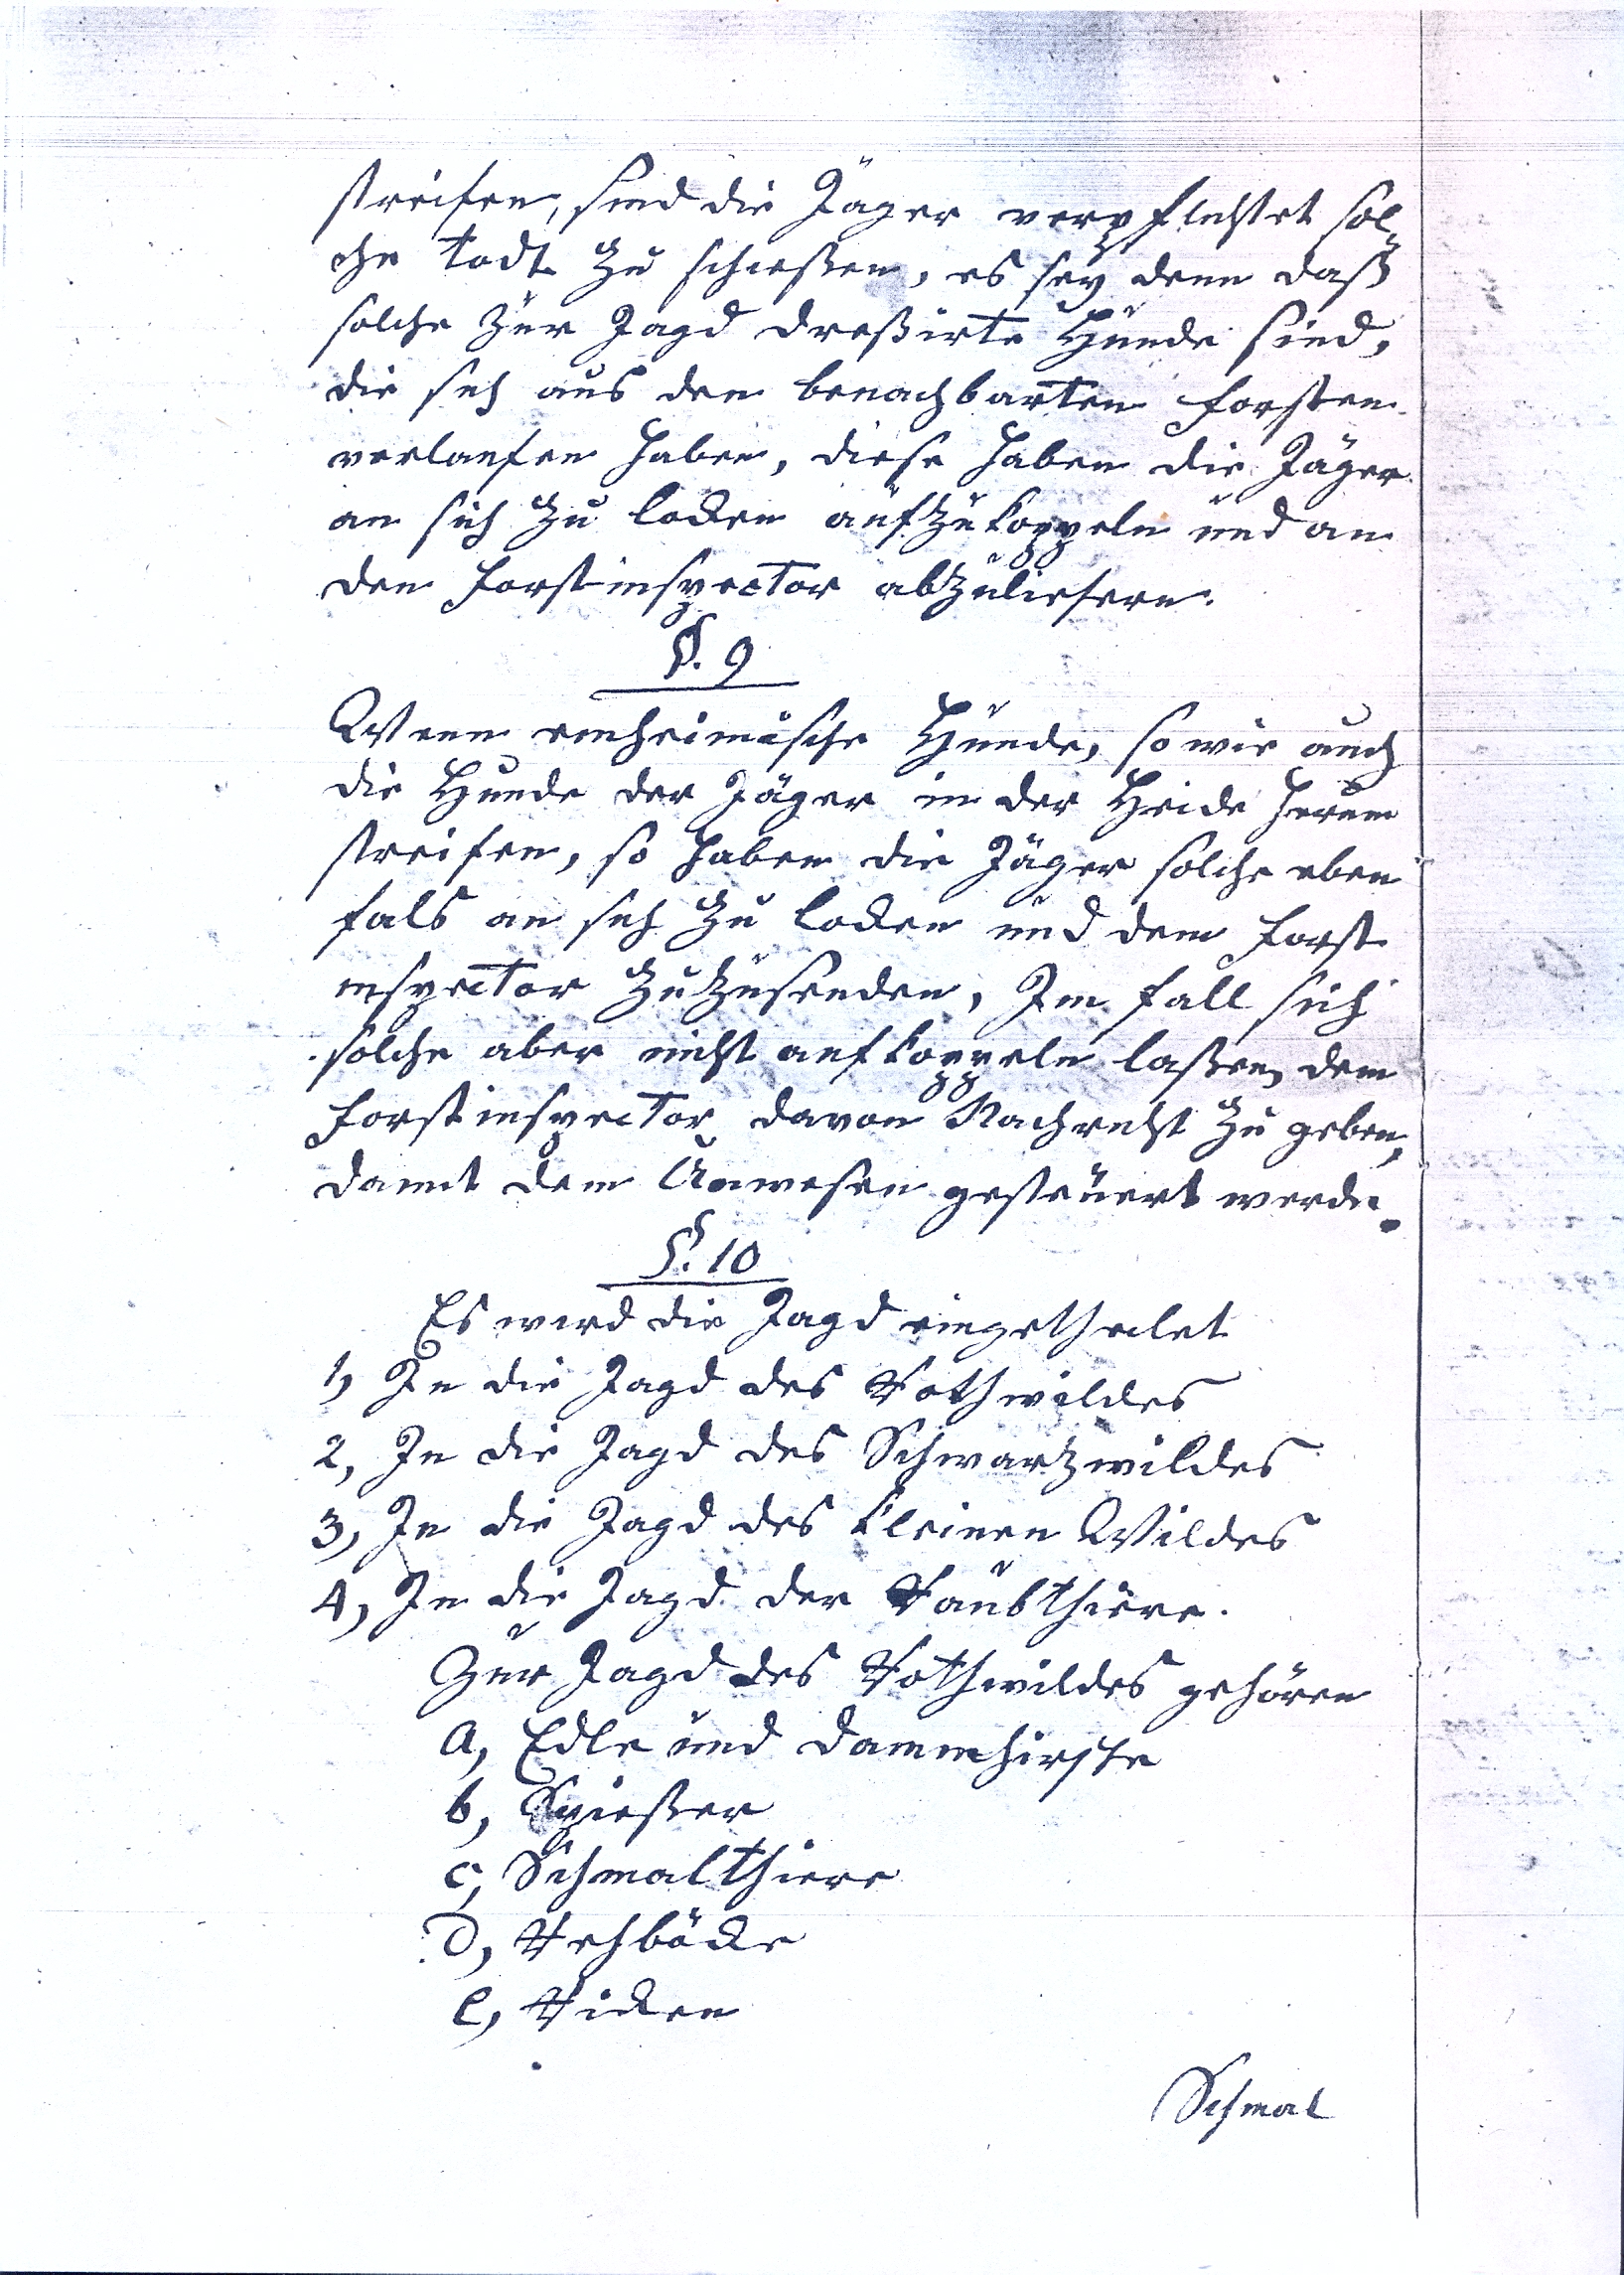 streifen, sind die Jäger verpflichtet sol-
che todt zu schießen, es sey denn daß
solche zur Jagd dreßirte Hunde sind,
die sich aus den benachbarten Forsten
verlaufen haben, diese haben die Jäger
an sich zu locken aufzukoppeln und an
den Forstinspector abzuliefern.
§. 9
Wenn einheimische Hunde, so wie auch
die Hunde der Jäger in der Heide herum
streifen, so haben die Jäger solche eben
fals an sich zu locken und dem Forst
inspector zuzusenden, Im Fall sich
solche aber nicht aufkoppeln laßen, dem
Forstinspector davon Nachricht zu geben,
damit dem Unwesen gesteuert werde.
§. 10
Es wird die Jagd eingetheilet
1, In die Jagd des Rothwildes
2, In die Jagd des Schwartzwildes
3, In die Jagd des kleinen Wildes
4, In die Jagd der Raubthiere.
Zur Jagd des Rothwildes gehören
a, Edle und Dammhirsche
b, Spießer
c, Schmalthiere
d, Rehböcke
e, Ricken
Schmal